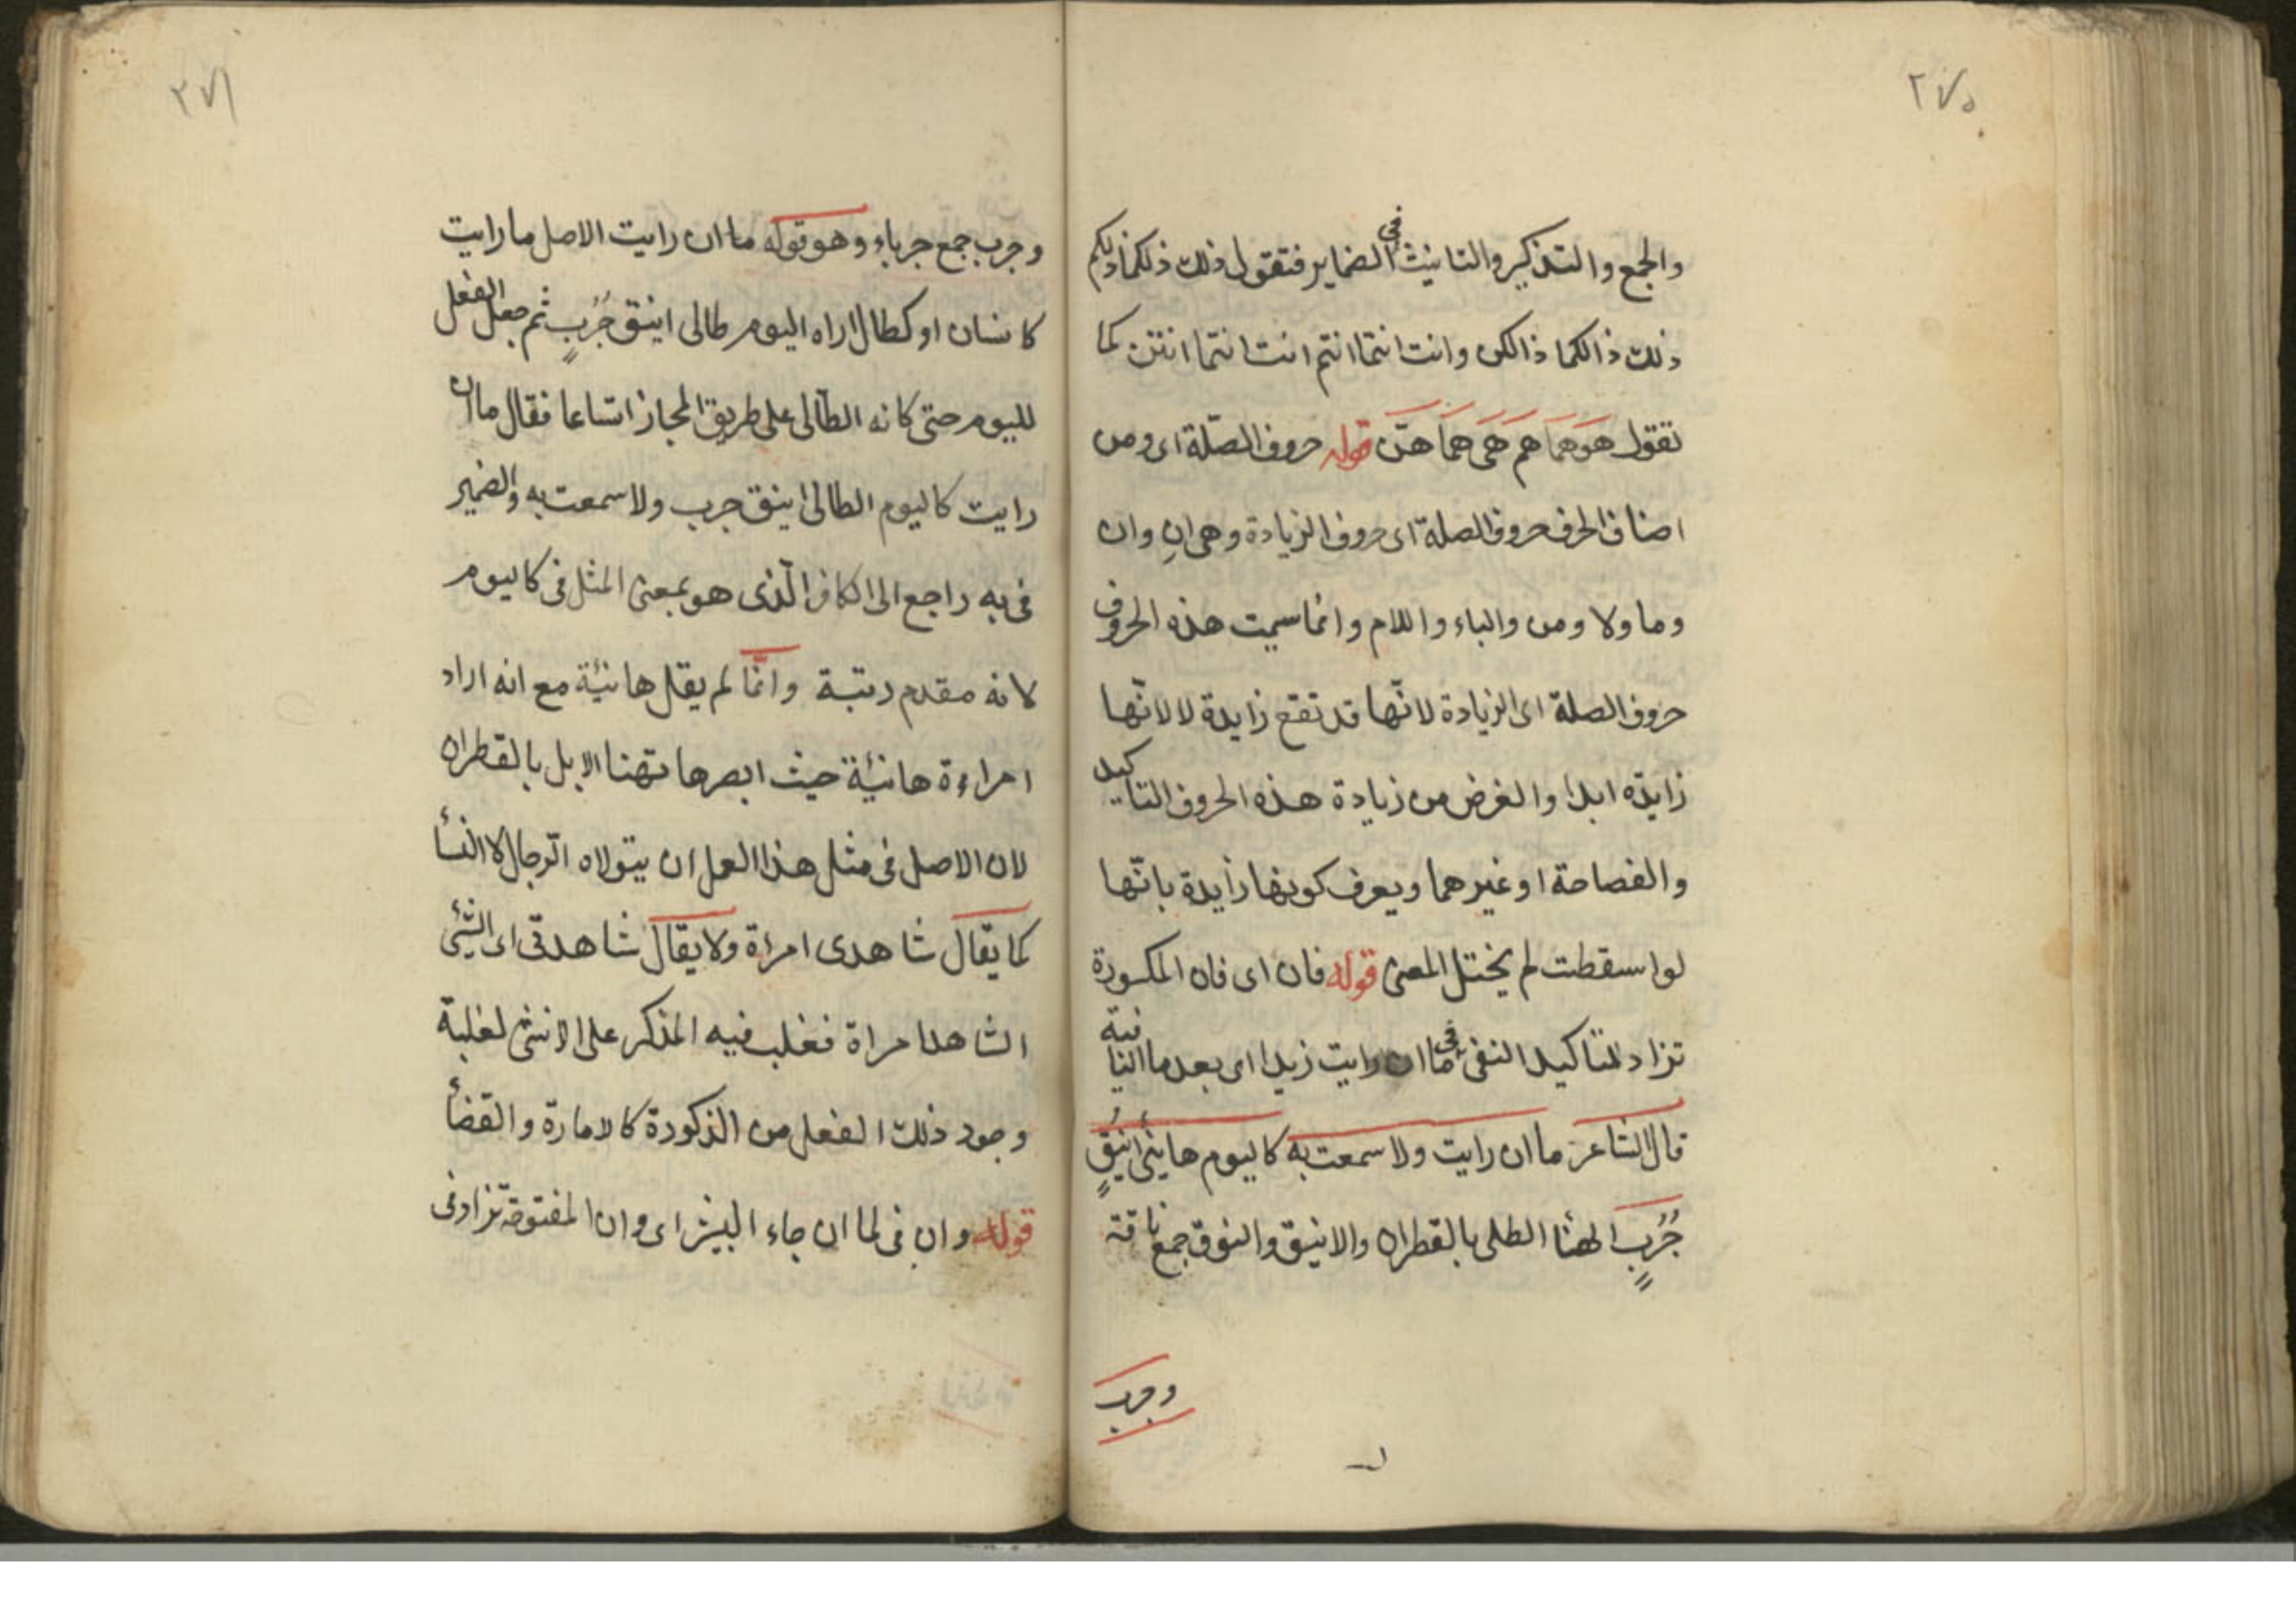 ٢٧٥
والجمع والتذكير والتانيث فى الضماير فتقول ذلك ذلكما ذلكم
ذلك ذالكما ذالكن وانت انتما انتم انت انتما انتن كما
تقول هو هما هم هى هما هنّ قوله حروف الصّلة اى ومن
اصناف الحرف حروف الصلة اى حروف الزيادة وهى انِ وان
وما ولا ومن والباء واللام وانما سميت هذه الحروف
حروف الصلة اى الزيادة لانّها قد تقع زايدة لا لانّها
زايدة ابدا والغرض من زيادة هذه الحروف التاكيد
والفصاحة او غيرهما ويعرف كونها زايدة بانّها
لو اسقطت لم يختل المعنى قوله فان اى فان المكسورة
تزاد لتاكيد النفى فى ما ان رايت زيدا اى بعد ما النافية
قال الشاعر ما ان رايت ولا سمعت به كاليوم هانئ اينُقٍ
جُرُبٍ الهنأ الطلى بالقطران والاينق والنوق جمع ناقة
وجرب
٢٧٦
وجرب جمع جرباء وهو قوله ما ان رايت الاصل ما رايت
كانسان او كطال اراه اليوم طالى اينق جُرُبٍ ثم جعل الفعل
لليوم حتى كانه الطّالى على طريق المجاز اتساعا فقال ما ان
رايت كاليوم الطالى اينق جرب ولا سمعت به والضمير
فى به راجع الى الكاف الّذى هو بمعنى المثل فى كاليوم
لانه مقدم رتبة وانّما لم يقل هانيئة مع انه اراد
امراءة هانيئة حيث ابصرها تهنا الابل بالقطران
لان الاصل فى مثل هذا العمل ان يتولاه الرّجال لا النسأ
كما يقال شاهدى امراة ولا يقال شاهدتى اى الشئ
الشاهد امراة فغلب فيه المذكر على الانثى لغلبة
وجود ذلك الفعل من الذكورة كالامارة والقضأ
قوله وان فى لما ان جاء البشير اى وان المفتوحة تزاد فى